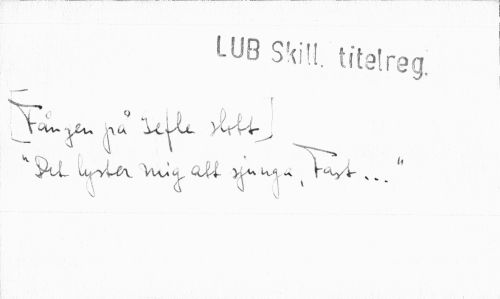 LUB Skill. titelreg.
[Fången på Gefle slott]
"Det lyster mig att sjunga, Fast..."